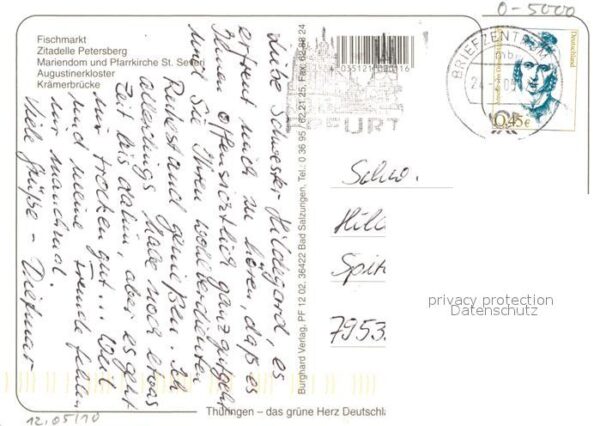 0-5000
Fischmarkt
Zitadelle Petersberg
Mariendom und Pfarrkirche St. Severi
Augustinerkloster
Krämerbrücke
BRIEFZENTRUM
24
ERFURT
Deutschland
0,45€
Liebe Schwester Hildegard, es
erfreut mich zu hören, daß es
Ihnen offensichtlich ganz gut geht
und Sie Ihren wohlverdienten
Ruhestand genießen. Ich
allerdings habe noch etwas
Zeit bis dahin, aber es geht
mir trocken gut... Weil
und meine Freunde fehlen
mir manchmal.
Viele Grüße - Dietmar
Burghard Verlag, PF 12 02, 36422 Bad Salzungen, Tel.: 0 36 95 / 62 21 25, Fax: 62 88 24
Schw.
Hil
Spit
7953
privacy protection
Datenschutz
Thüringen – das grüne Herz Deutschla
12.05/10